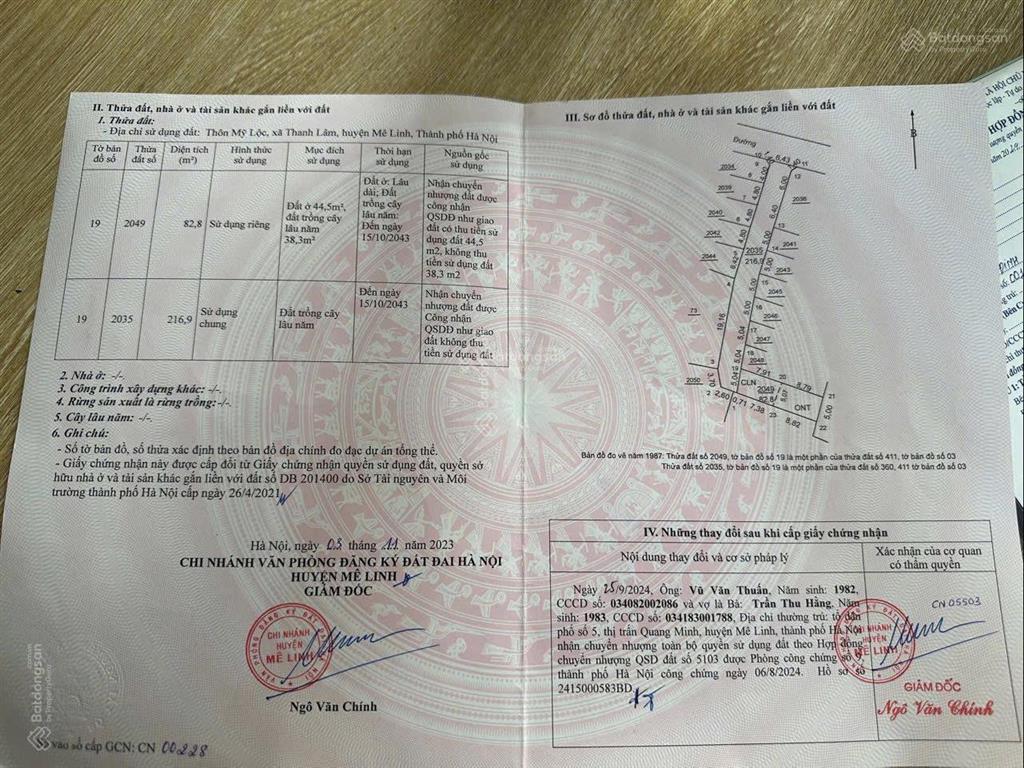 II. Thửa đất, nhà ở và tài sản khác gắn liền với đất
1. Thửa đất:
- Địa chỉ sử dụng đất: Thôn Mỹ Lộc, xã Thanh Lâm, huyện Mê Linh, Thành phố Hà Nội
Tờ bản đồ số
Thửa đất số
Diện tích (m²)
Hình thức sử dụng
Mục đích sử dụng
Thời hạn sử dụng
Nguồn gốc sử dụng
19
2049
82,8
Sử dụng riêng
Đất ở 44,5m²,
đất trồng cây
lâu năm
38,3m²
Đất ở: Lâu
dài; Đất
trồng cây
lâu năm:
Đến ngày
15/10/2043
Nhận chuyển
nhượng đất được
công nhận
QSDĐ như giao
đất có thu tiền sử
dụng đất 44,5
m2, không thu
tiền sử dụng đất
38,3 m2
19
2035
216,9
Sử dụng
chung
Đất trồng cây
lâu năm
Đến ngày
15/10/2043
Nhận chuyển
nhượng đất được
Công nhận
QSDĐ như giao
đất không thu
tiền sử dụng đất
2. Nhà ở: -/-.
3. Công trình xây dựng khác: -/-.
4. Rừng sản xuất là rừng trồng: -/-.
5. Cây lâu năm: -/-.
6. Ghi chú:
- Số tờ bản đồ, số thửa xác định theo bản đồ địa chính đo đạc dự án tổng thể.
- Giấy chứng nhận này được cấp đổi từ Giấy chứng nhận quyền sử dụng đất, quyền sở
hữu nhà ở và tài sản khác gắn liền với đất số DB 201400 do Sở Tài nguyên và Môi
trường thành phố Hà Nội cấp ngày 26/4/2021
Hà Nội, ngày 03 tháng 11 năm 2023
CHI NHÁNH VĂN PHÒNG ĐĂNG KÝ ĐẤT ĐAI HÀ NỘI
HUYỆN MÊ LINH
GIÁM ĐỐC
CHI NHÁNH
HUYỆN
MÊ LINH
Ngô Văn Chính
vào sổ cấp GCN: CN 00228
III. Sơ đồ thửa đất, nhà ở và tài sản khác gắn liền với đất
B
Đường
10
6,43
11
2034
9
4,00
6,00
12
8
2039
4,80
2036
7
6,40
2040
6
4,80
13
2042
4,80
5,00
2041
2035
14
2044
216,9
2043
6,42
5,00
15
4
2045
73
5,00
5,00
16
2046
19,16
5,04
17
2047
5,04
18
2048
3
7,91
20
2050
3,70
5,04
CLN
2049
82,8
8,79
21
5,07
2
2,60
0,71
7,38
23
ONT
1
8,82
22
Bản đồ đo vẽ năm 1987: Thửa đất số 2049, tờ bản đồ số 19 là một phần của thửa đất số 411, tờ bản đồ số 03
Thửa đất số 2035, tờ bản đồ số 19 là một phần của thửa đất số 360, 411 tờ bản đồ số 03
IV. Những thay đổi sau khi cấp giấy chứng nhận
Nội dung thay đổi và cơ sở pháp lý
Xác nhận của cơ quan
có thẩm quyền
Ngày 25/9/2024, Ông: Vũ Văn Thuấn, Năm sinh: 1982,
CCCD số: 034082002086 và vợ là Bà: Trần Thu Hằng, Năm
sinh: 1983, CCCD số: 034183001788, Địa chỉ thường trú: tổ dân
phố số 5, thị trấn Quang Minh, huyện Mê Linh, thành phố Hà Nội
nhận chuyển nhượng toàn bộ quyền sử dụng đất theo Hợp đồng
chuyển nhượng QSD đất số 5103 được Phòng công chứng số 9,
thành phố Hà Nội công chứng ngày 06/8/2024. Hồ sơ số
2415000583BD
CN 05503
CHI NHÁNH
HUYỆN
MÊ LINH
GIÁM ĐỐC
Ngô Văn Chính
Batdongsan
by PropertyGuru
Batdongsan
Batdongsan
HỢP ĐỒN